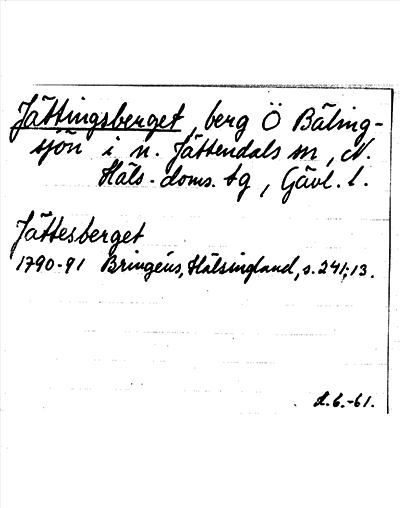 Jättingsberget, berg Ö Bäling-
sjön i n. Jättendals sn, N.
Häls. doms. tg, Gävl. l.
Jättesberget
1790-91 Bringéus, Hälsingland, s. 241:13.
6.-61.